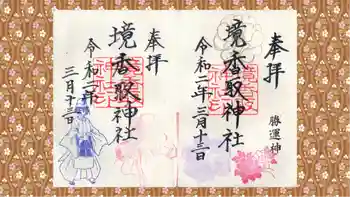 奉拝
境香取神社
令和二年
三月十三日
奉拝
勝運神
境香取神社
令和二年三月十三日